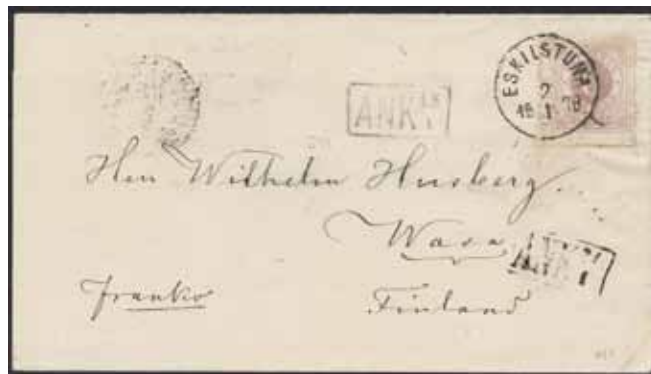 ESKILSTUNA
2
18 1 78
ANK.
Herr Wilhelm Husberg
Wasa
ANK.
franko
Finland